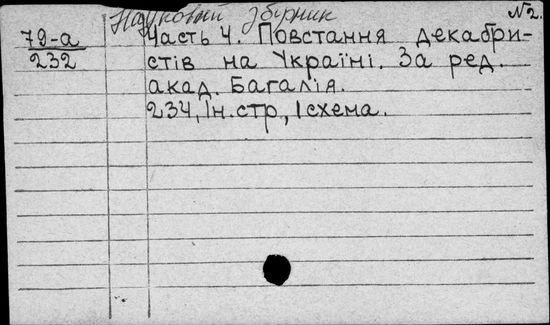 Науковый збірник №2.
79-а Часть 4. Повстання декабри-
232 стів на Україні. За ред.
акад. Багалія.
234, Ін. стр., 1 схема.